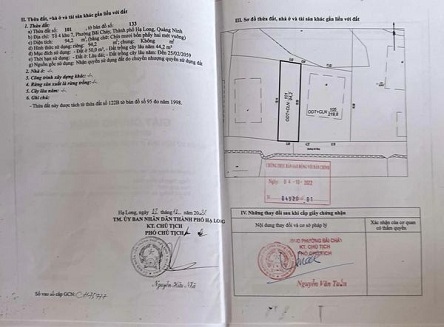 II. Thửa đất, nhà ở và tài sản khác gắn liền với đất
1. Thửa đất:
a) Thửa đất số: 101 , tờ bản đồ số: 133
b) Địa chỉ: Tổ 4 khu 7, Phường Bãi Cháy, Thành phố Hạ Long, Quảng Ninh
c) Diện tích: 94,2 m², (bằng chữ: Chín mươi bốn phẩy hai mét vuông)
d) Hình thức sử dụng: riêng: 94,2 m², chung: Không m²
đ) Mục đích sử dụng: - Đất ở 50,0 m², - Đất trồng cây lâu năm 44,2 m²
e) Thời hạn sử dụng: - Đất ở: Lâu dài; - Đất trồng cây lâu năm: Đến 25/02/2059
g) Nguồn gốc sử dụng: Nhận quyền sử dụng đất do chuyển nhượng quyền sử dụng đất
2. Nhà ở: -/-
3. Công trình xây dựng khác: -/-
4. Rừng sản xuất là rừng trồng: -/-
5. Cây lâu năm: -/-
6. Ghi chú:
- Thửa đất này được tách từ thửa đất số 122B tờ bản đồ số 95 đo năm 1998.
Hạ Long, ngày tháng năm
TM. ỦY BAN NHÂN DÂN THÀNH PHỐ HẠ LONG
KT. CHỦ TỊCH
PHÓ CHỦ TỊCH
Số vào sổ cấp GCN:
III. Sơ đồ thửa đất, nhà ở và tài sản khác gắn liền với đất
ODT+CLN
94.2
ODT+CLN
Ngày:
IV. Những thay đổi sau khi cấp giấy chứng nhận
Nội dung thay đổi và cơ sở pháp lý
Xác nhận của cơ quan có thẩm quyền
PHƯỜNG BÃI CHÁY
KT. CHỦ TỊCH
PHÓ CHỦ TỊCH
Nguyễn Văn Tuấn